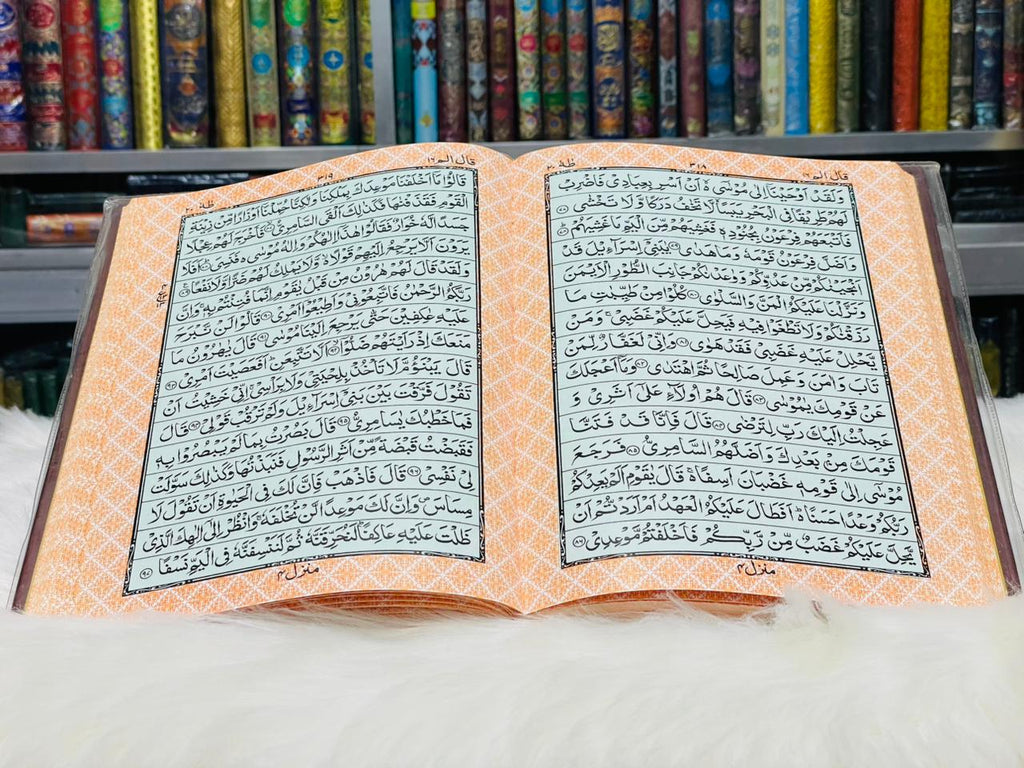 قال الم ١٦ ٣١٨ طٰهٰ ٢٠
وَلَقَدْ اَوْحَيْنَاۤ اِلٰى مُوْسٰۤى ەۙ اَنْ اَسْرِ بِعِبَادِىْ فَاضْرِبْ
لَهُمْ طَرِيْقًا فِى الْبَحْرِ يَبَسًا ۙ لَّا تَخٰفُ دَرَكًا وَّلَا تَخْشٰى ٧٧
فَاَتْبَعَهُمْ فِرْعَوْنُ بِجُنُوْدِهٖ فَغَشِيَهُمْ مِّنَ الْيَمِّ مَا غَشِيَهُمْ ٧٨
وَاَضَلَّ فِرْعَوْنُ قَوْمَهٗ وَمَا هَدٰى ٧٩ يٰبَنِىْۤ اِسْرَآءِيْلَ قَدْ
اَنْجَيْنٰكُمْ مِّنْ عَدُوِّكُمْ وَوٰعَدْنٰكُمْ جَانِبَ الطُّوْرِ الْاَيْمَنَ
وَنَزَّلْنَا عَلَيْكُمُ الْمَنَّ وَالسَّلْوٰى ٨٠ كُلُوْا مِنْ طَيِّبٰتِ مَا
رَزَقْنٰكُمْ وَلَا تَطْغَوْا فِيْهِ فَيَحِلَّ عَلَيْكُمْ غَضَبِىْ ۚ وَمَنْ
يَّحْلِلْ عَلَيْهِ غَضَبِىْ فَقَدْ هَوٰى ٨١ وَاِنِّىْ لَغَفَّارٌ لِّمَنْ
تَابَ وَاٰمَنَ وَعَمِلَ صَالِحًا ثُمَّ اهْتَدٰى ٨٢ وَمَاۤ اَعْجَلَكَ
عَنْ قَوْمِكَ يٰمُوْسٰى ٨٣ قَالَ هُمْ اُولَآءِ عَلٰۤى اَثَرِىْ وَ
عَجِلْتُ اِلَيْكَ رَبِّ لِتَرْضٰى ٨٤ قَالَ فَاِنَّا قَدْ فَتَنَّا
قَوْمَكَ مِنْۢ بَعْدِكَ وَاَضَلَّهُمُ السَّامِرِىُّ ٨٥ فَرَجَعَ
مُوْسٰۤى اِلٰى قَوْمِهٖ غَضْبَانَ اَسِفًا ۚ قَالَ يٰقَوْمِ اَلَمْ يَعِدْكُمْ
رَبُّكُمْ وَعْدًا حَسَنًا ۚ اَفَطَالَ عَلَيْكُمُ الْعَهْدُ اَمْ اَرَدْتُّمْ اَنْ
يَّحِلَّ عَلَيْكُمْ غَضَبٌ مِّنْ رَّبِّكُمْ فَاَخْلَفْتُمْ مَّوْعِدِىْ ٨٦
منزل ٤
قال الم ١٦ ٣١٩ طٰهٰ ٢٠
قَالُوْا مَاۤ اَخْلَفْنَا مَوْعِدَكَ بِمَلْكِنَا وَلٰكِنَّا حُمِّلْنَاۤ اَوْزَارًا مِّنْ زِيْنَةِ
الْقَوْمِ فَقَذَفْنٰهَا فَكَذٰلِكَ اَلْقَى السَّامِرِىُّ ٨٧ فَاَخْرَجَ لَهُمْ عِجْلًا
جَسَدًا لَّهٗ خُوَارٌ فَقَالُوْا هٰذَاۤ اِلٰهُكُمْ وَاِلٰهُ مُوْسٰى ەۙ فَنَسِىَ ٨٨ اَفَلَا
يَرَوْنَ اَلَّا يَرْجِعُ اِلَيْهِمْ قَوْلًا ەۙ وَّلَا يَمْلِكُ لَهُمْ ضَرًّا وَّلَا نَفْعًا ٨٩
وَلَقَدْ قَالَ لَهُمْ هٰرُوْنُ مِنْ قَبْلُ يٰقَوْمِ اِنَّمَا فُتِنْتُمْ بِهٖ ۚ وَاِنَّ
رَبَّكُمُ الرَّحْمٰنُ فَاتَّبِعُوْنِىْ وَاَطِيْعُوْۤا اَمْرِىْ ٩٠ قَالُوْا لَنْ نَّبْرَحَ
عَلَيْهِ عٰكِفِيْنَ حَتّٰى يَرْجِعَ اِلَيْنَا مُوْسٰى ٩١ قَالَ يٰهٰرُوْنُ مَا
مَنَعَكَ اِذْ رَاَيْتَهُمْ ضَلُّوْۤا ٩٢ اَلَّا تَتَّبِعَنِ ؕ اَفَعَصَيْتَ اَمْرِىْ ٩٣
قَالَ يَبْنَؤُمَّ لَا تَاْخُذْ بِلِحْيَتِىْ وَلَا بِرَاْسِىْ ۚ اِنِّىْ خَشِيْتُ اَنْ
تَقُوْلَ فَرَّقْتَ بَيْنَ بَنِىْۤ اِسْرَآءِيْلَ وَلَمْ تَرْقُبْ قَوْلِىْ ٩٤ قَالَ
فَمَا خَطْبُكَ يٰسَامِرِىُّ ٩٥ قَالَ بَصُرْتُ بِمَا لَمْ يَبْصُرُوْا بِهٖ
فَقَبَضْتُ قَبْضَةً مِّنْ اَثَرِ الرَّسُوْلِ فَنَبَذْتُهَا وَكَذٰلِكَ سَوَّلَتْ
لِىْ نَفْسِىْ ٩٦ قَالَ فَاذْهَبْ فَاِنَّ لَكَ فِى الْحَيٰوةِ اَنْ تَقُوْلَ لَا
مِسَاسَ ۪ وَاِنَّ لَكَ مَوْعِدًا لَّنْ تُخْلَفَهٗ ۚ وَانْظُرْ اِلٰۤى اِلٰهِكَ الَّذِىْ
ظَلْتَ عَلَيْهِ عَاكِفًا ؕ لَنُحَرِّقَنَّهٗ ثُمَّ لَنَنْسِفَنَّهٗ فِى الْيَمِّ نَسْفًا ٩٧
منزل ٤